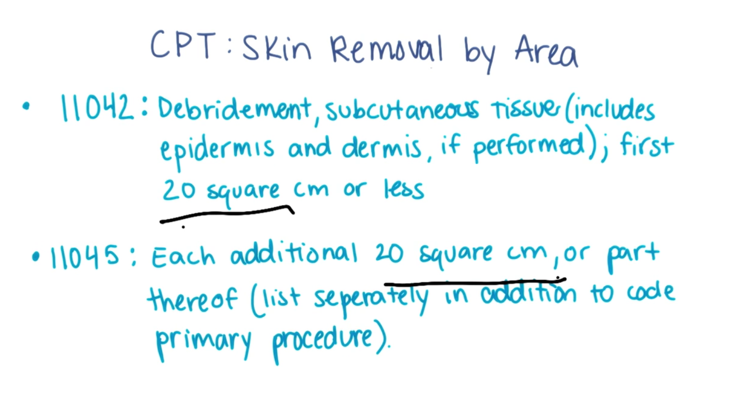 CPT: Skin Removal by Area
• 11042: Debridement, subcutaneous tissue (includes
epidermis and dermis, if performed); first
20 square cm or less
• 11045: Each additional 20 square cm, or part
thereof (list seperately in addition to code
primary procedure).